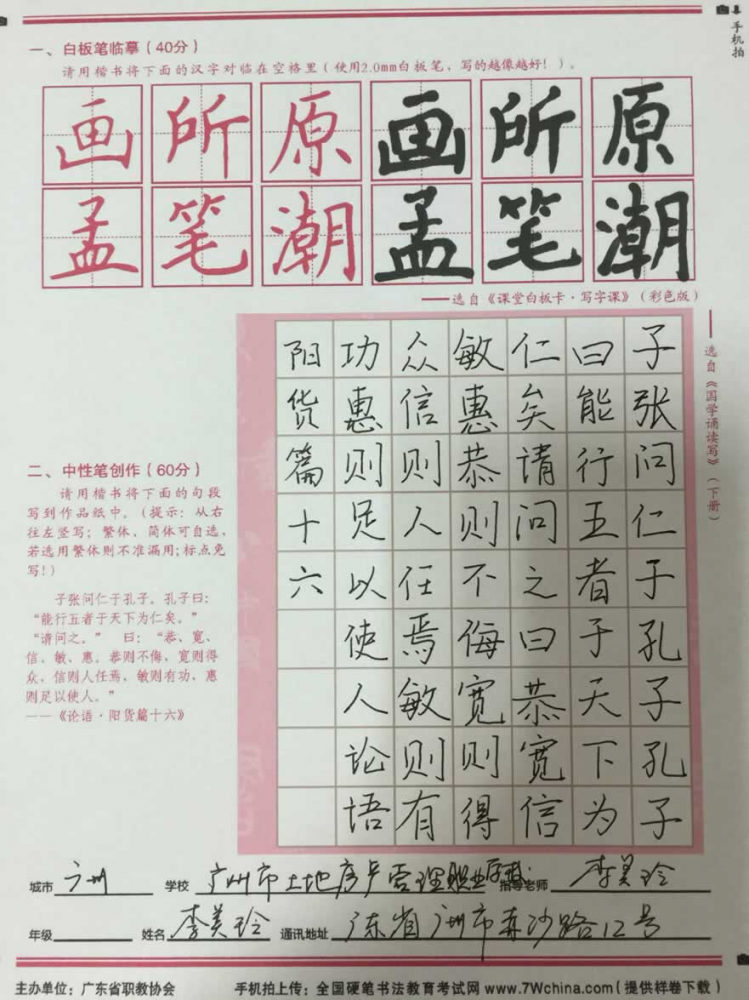 手机拍
一、白板笔临摹（40分）
请用楷书将下面的汉字对临在空格里（使用2.0mm白板笔，写的越像越好！）。
画所原画所原
孟笔潮孟笔潮
——选自《课堂白板卡·写字课》（彩色版）
——选自《国学诵读写》（下册）
子张问仁于孔子孔子
曰能行五者于天下为
仁矣请问之曰恭宽信
敏惠恭则不侮宽则得
众信则人任焉敏则有
功惠则足以使人论语
阳货篇十六
二、中性笔创作（60分）
请用楷书将下面的句段
写到作品纸中。（提示：从右
往左竖写；繁体、简体可自选，
若选用繁体则不准漏用；标点免
写！）
子张问仁于孔子。孔子曰：
“能行五者于天下为仁矣。”
“请问之。” 曰：“恭、宽、
信、敏、惠。恭则不侮，宽则得
众，信则人任焉，敏则有功，惠
则足以使人。”
——《论语·阳货篇十六》
城市 广州 学校 广州市土地房产管理职业学校 指导老师 李美玲
年级 姓名 李美玲 通讯地址 广东省广州市 沙路12号
主办单位：广东省职教协会 手机拍上传：全国硬笔书法教育考试网 www.7Wchina.com（提供样卷下载）